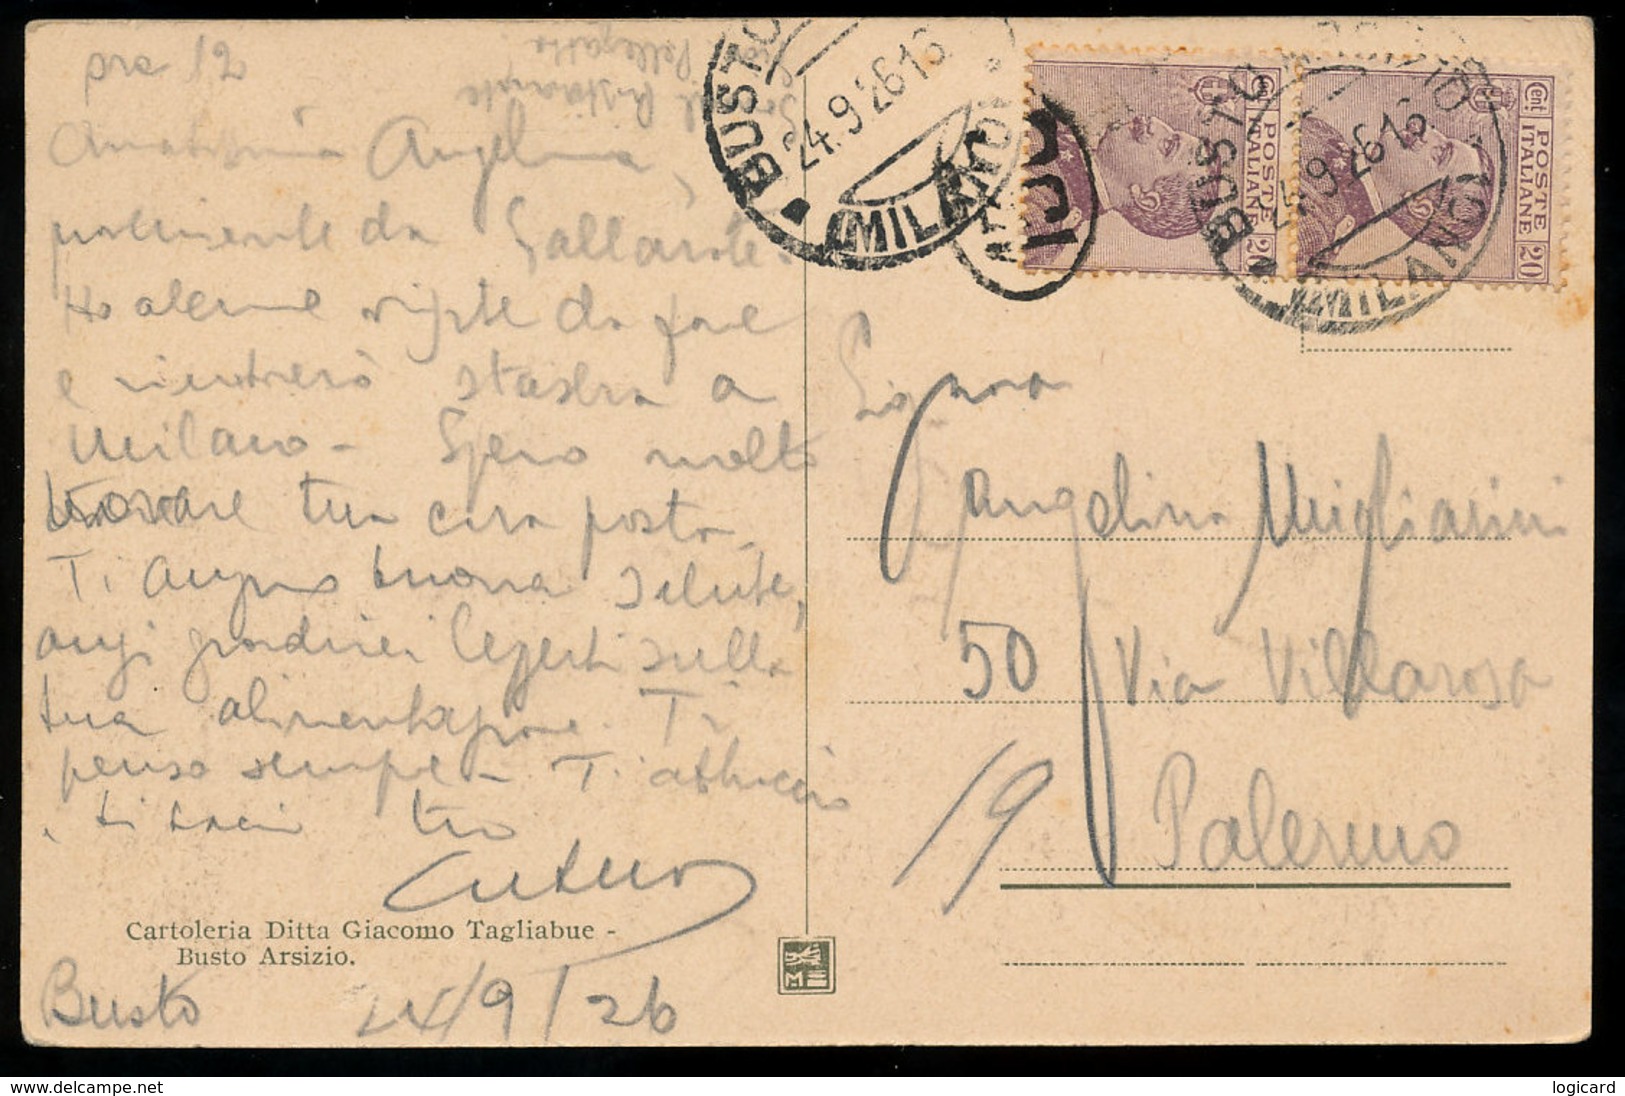 ore 12
Sono al Ristorante
Pellegatta
Amatissima Angelina,
proveniente da Gallarate.
Ho alcune visite da fare
e rientrerò stasera a
Milano - Spero molto
trovare tua cara posta.
Ti auguro buona salute,
anzi gradirei leggerti sulla
tua alimentazione. Ti
penso sempre - Ti abbraccio
ti baci tuo
Cartoleria Ditta Giacomo Tagliabue -
Busto Arsizio.
Busto 24/9/26
BUSTO
24.9.26 16
(MILANO)
POSTE ITALIANE
Cent. 20
POSTE ITALIANE
Cent. 20
BUSTO ARSIZIO
24.9.26 16
(MILANO)
Signora
Angelina Migliarini
50 Via Villarosa
19 Palermo
www.delcampe.net
logicard